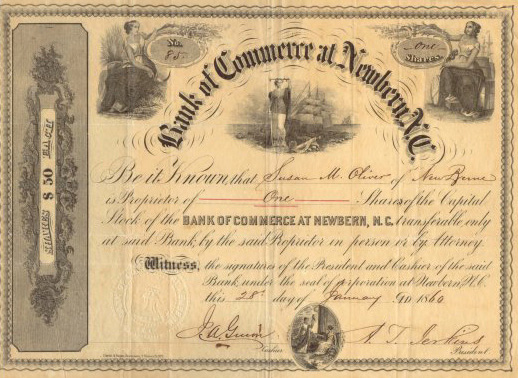 No. 85
One Shares.
Bank of Commerce at Newbern, N.C.
SHARES $ 50 EACH
Be it Known, that Susan M. Oliver of New Berne
is Proprietor of One Shares of the Capital
Stock of the BANK OF COMMERCE AT NEWBERN, N.C. transferable only
at said Bank, by the said Proprietor in person or by Attorney.
Witness, the signatures of the President and Cashier of the said
Bank, under the seal of corporation at Newbern, N.C.
this 28th day of January A.D. 1860
J.A. Guion Cashier
A. T. Jerkins President